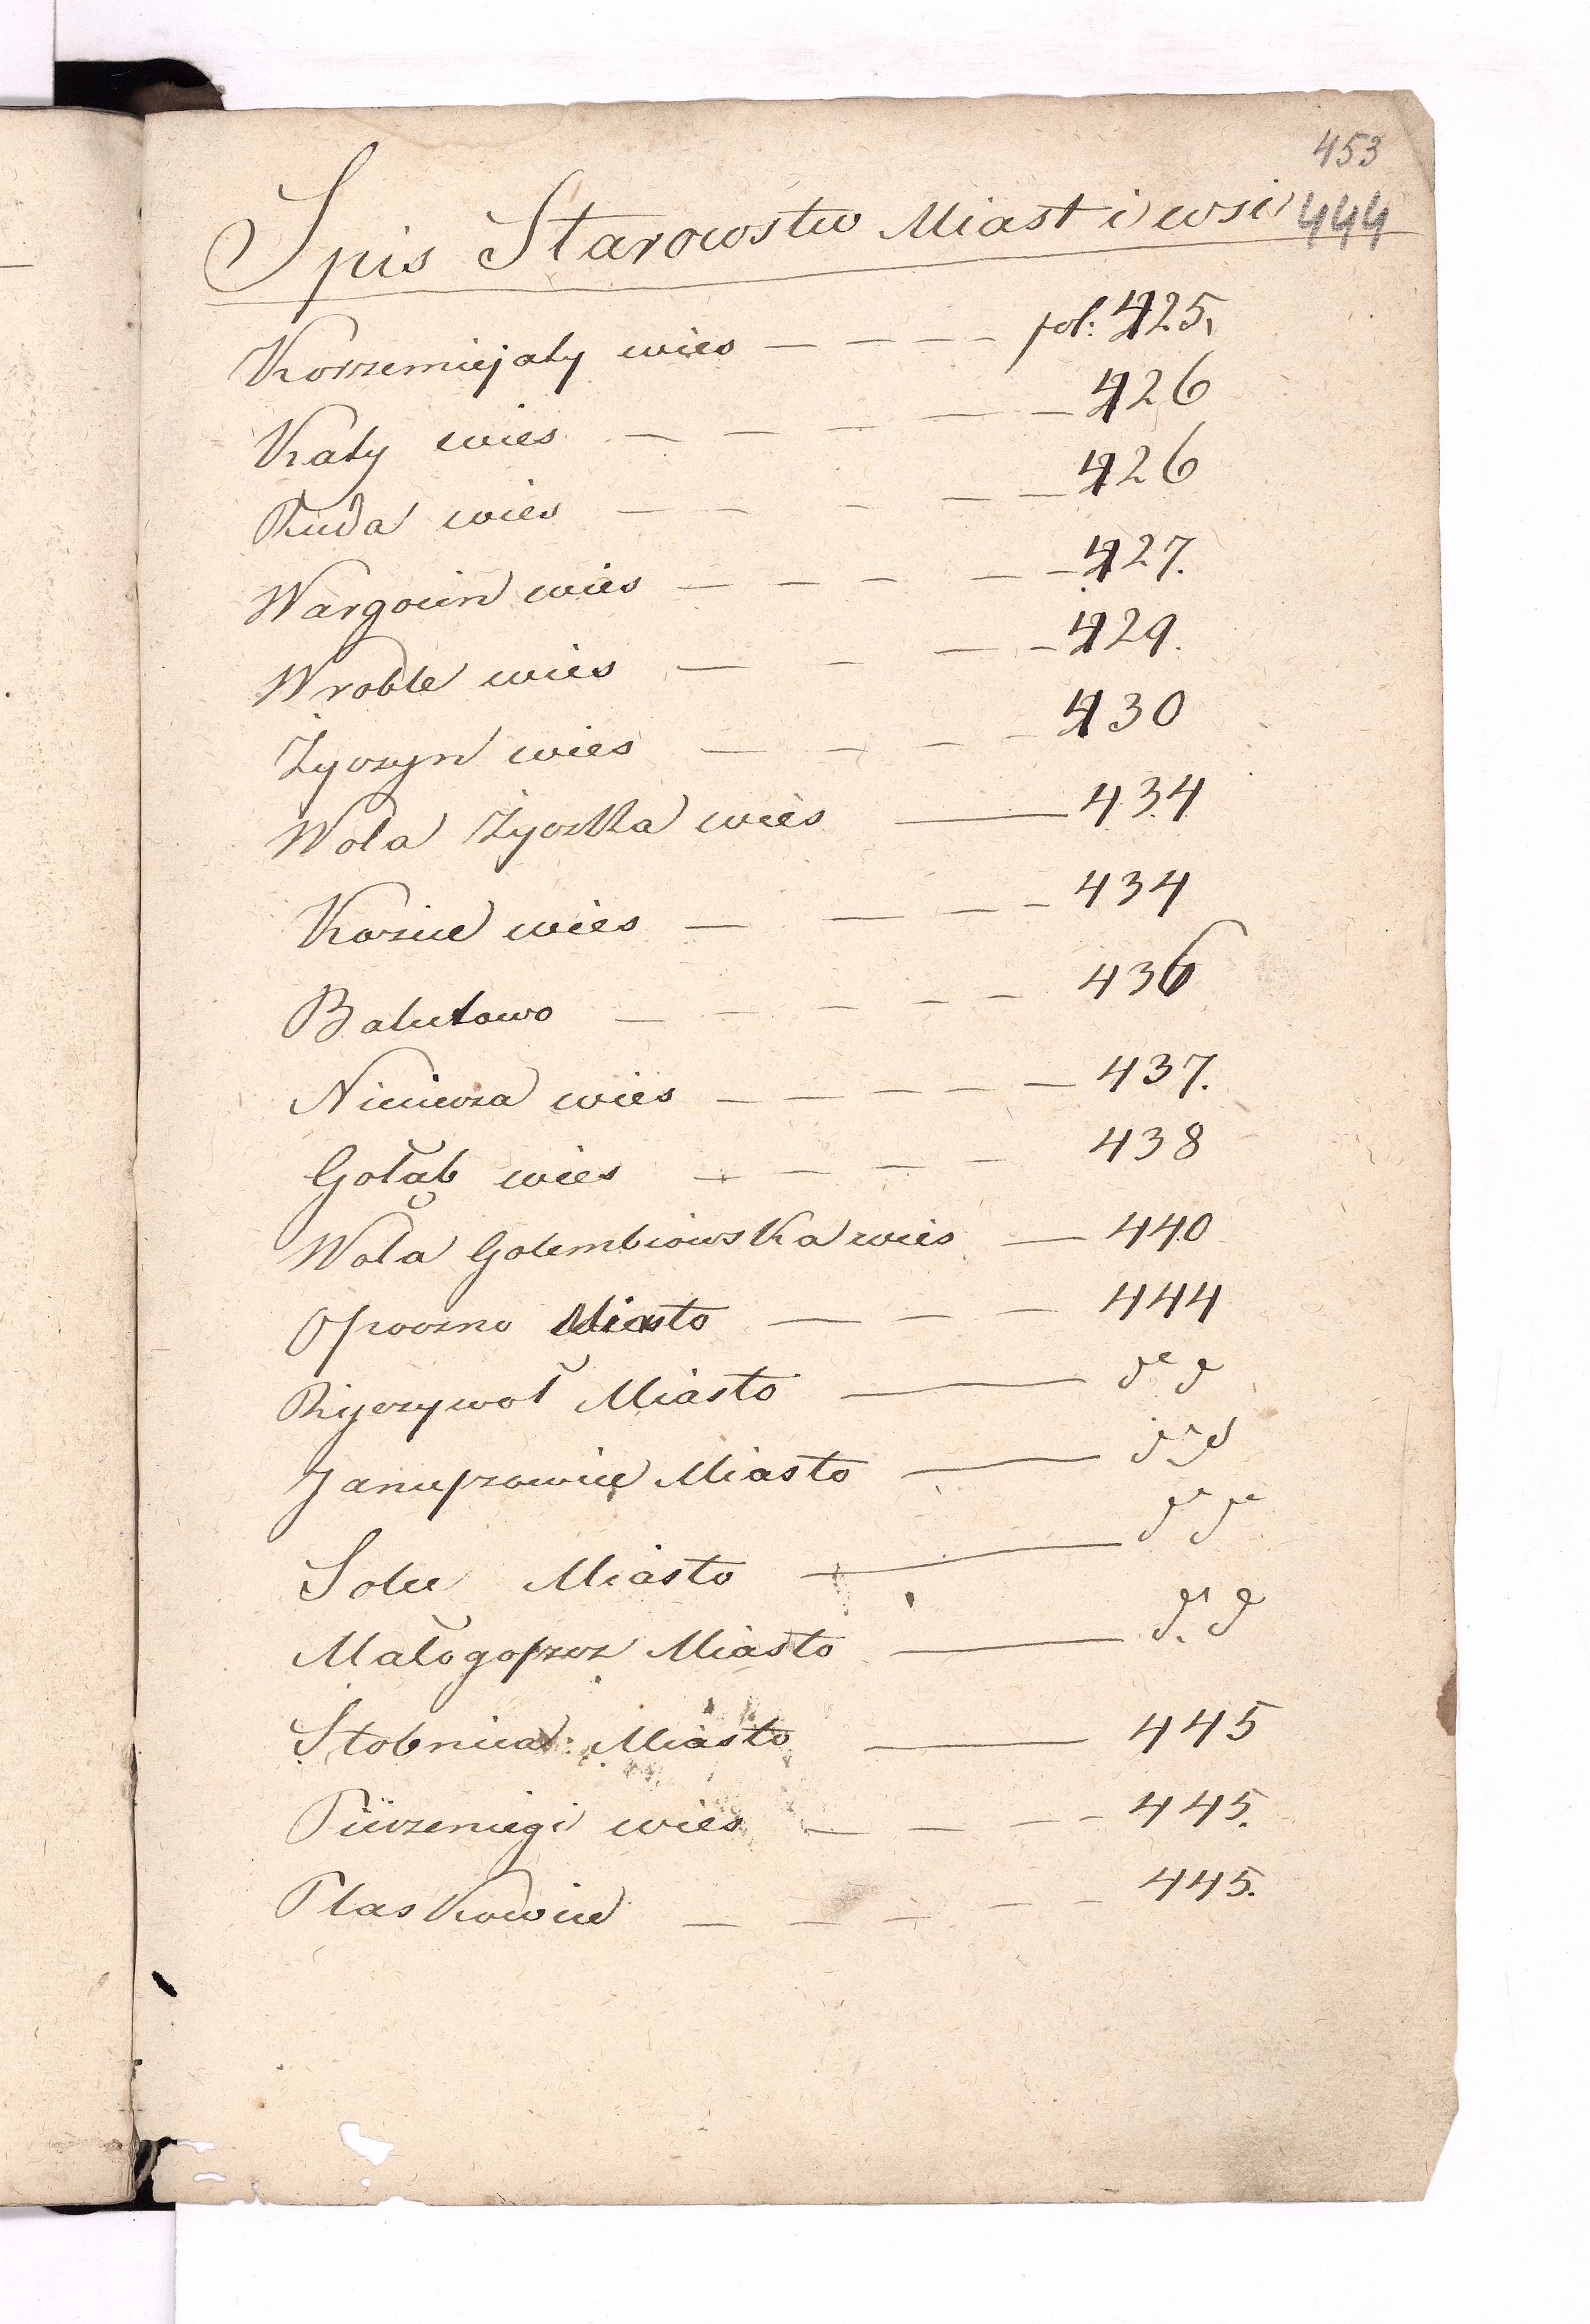 453
Spis Starowstw Miast i wsi 444
Korzeniejaty wies — — — — fol: 425,
Katy wies — — — — — 426
Ruda wies — — — — — 426
Wargocin wies — — — — — 427.
Wroble wies — — — — 429.
Życzyn wies — — — — 430
Wola Życzka wies — 434
Kozice wies — — — — 434
Balutowo — — — — — 436
Nieciecza wies — — — — — 437.
Gołąb wies — — — — 438
Wola Golembiowska wies — 440
Opoczno Miasto — — — 444
Ryczywoł Miasto — de de
Januszowice Miasto — de de
Solec Miasto — de de
Małogoszcz Miasto — de de
Stobnica Miasto — 445
Piiczeniegi wies — — — — 445.
Plaskowice — — — — — 445.